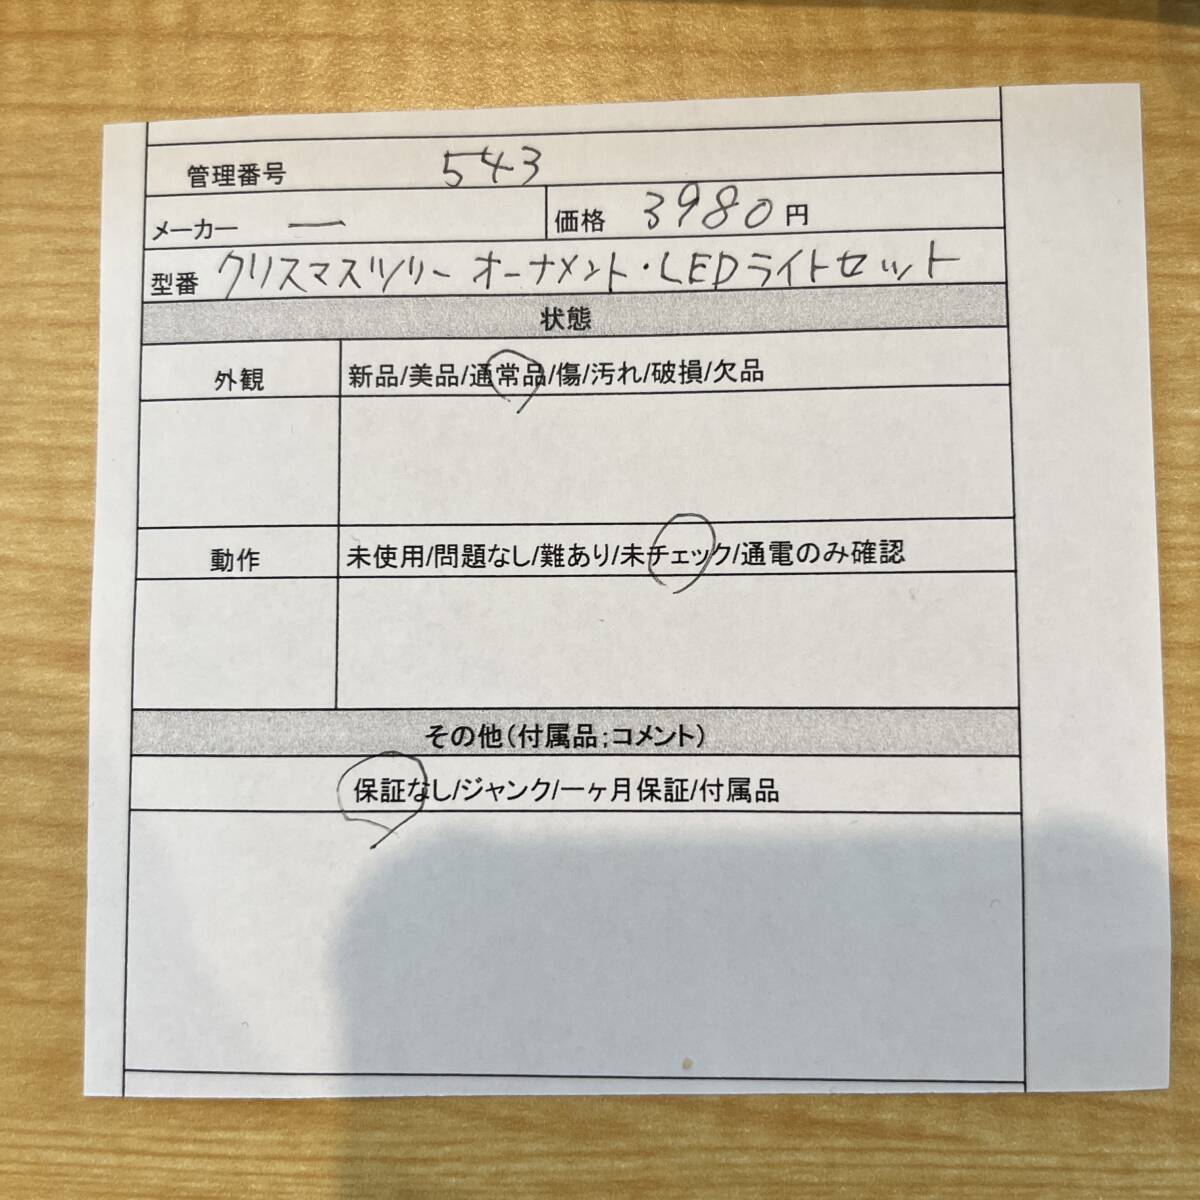 管理番号 543
メーカー — 価格 3980円
型番 クリスマスツリー オーナメント・LEDライトセット
状態
外観 新品/美品/通常品/傷/汚れ/破損/欠品
動作 未使用/問題なし/難あり/未チェック/通電のみ確認
その他(付属品;コメント)
保証なし/ジャンク/一ヶ月保証/付属品